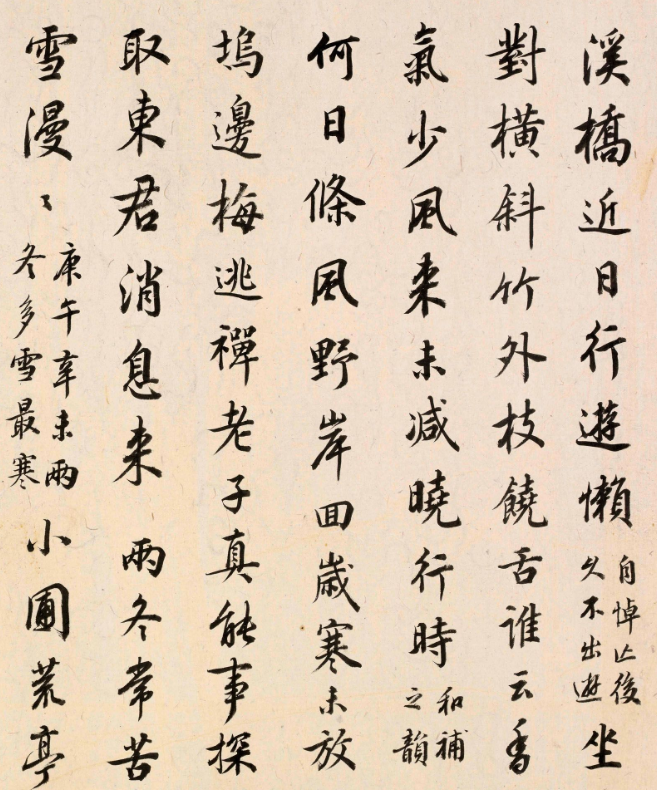 溪橋近日行遊懶自悼亡後久不出遊坐
對橫斜竹外枝饒舌誰云香
氣少風来未減曉行時和補之韻
何日條風野岸回歲寒未放
塢邊梅逃禪老子真能事探
取東君消息来 兩冬常苦
雪漫〻庚午辛未兩冬多雪最寒小圃荒亭